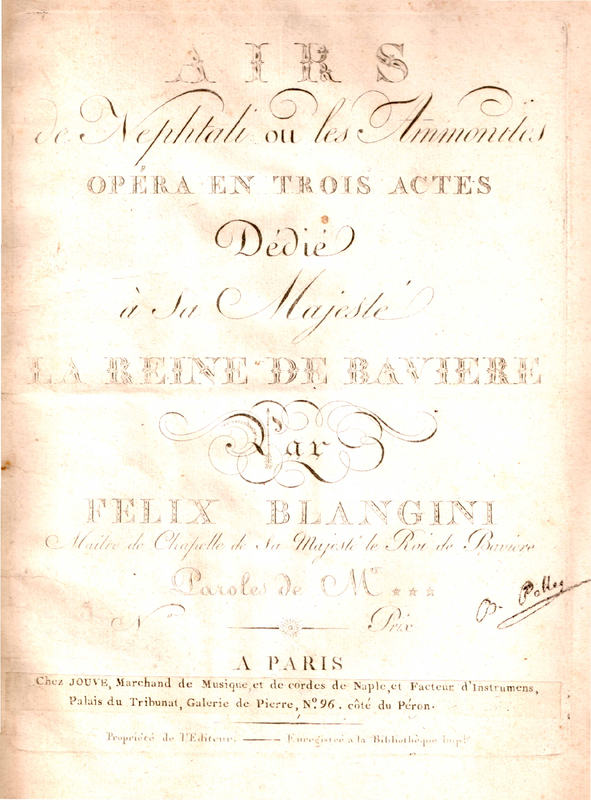 AIRS
de Nephtali ou les Ammonites
OPÉRA EN TROIS ACTES
Dédié
à Sa Majesté
LA REINE DE BAVIERE
Par
FELIX BLANGINI
Maître de Chapelle de Sa Majesté le Roi de Baviere
Paroles de Mr ***
No Prix
A PARIS
Chez JOUVE, Marchand de Musique, et de cordes de Naple, et Facteur d'Instrumens,
Palais du Tribunat, Galerie de Pierre, No. 96. côté du Péron.
Propriété de l'Editeur. Enregistré a la Bibliothèque Imple